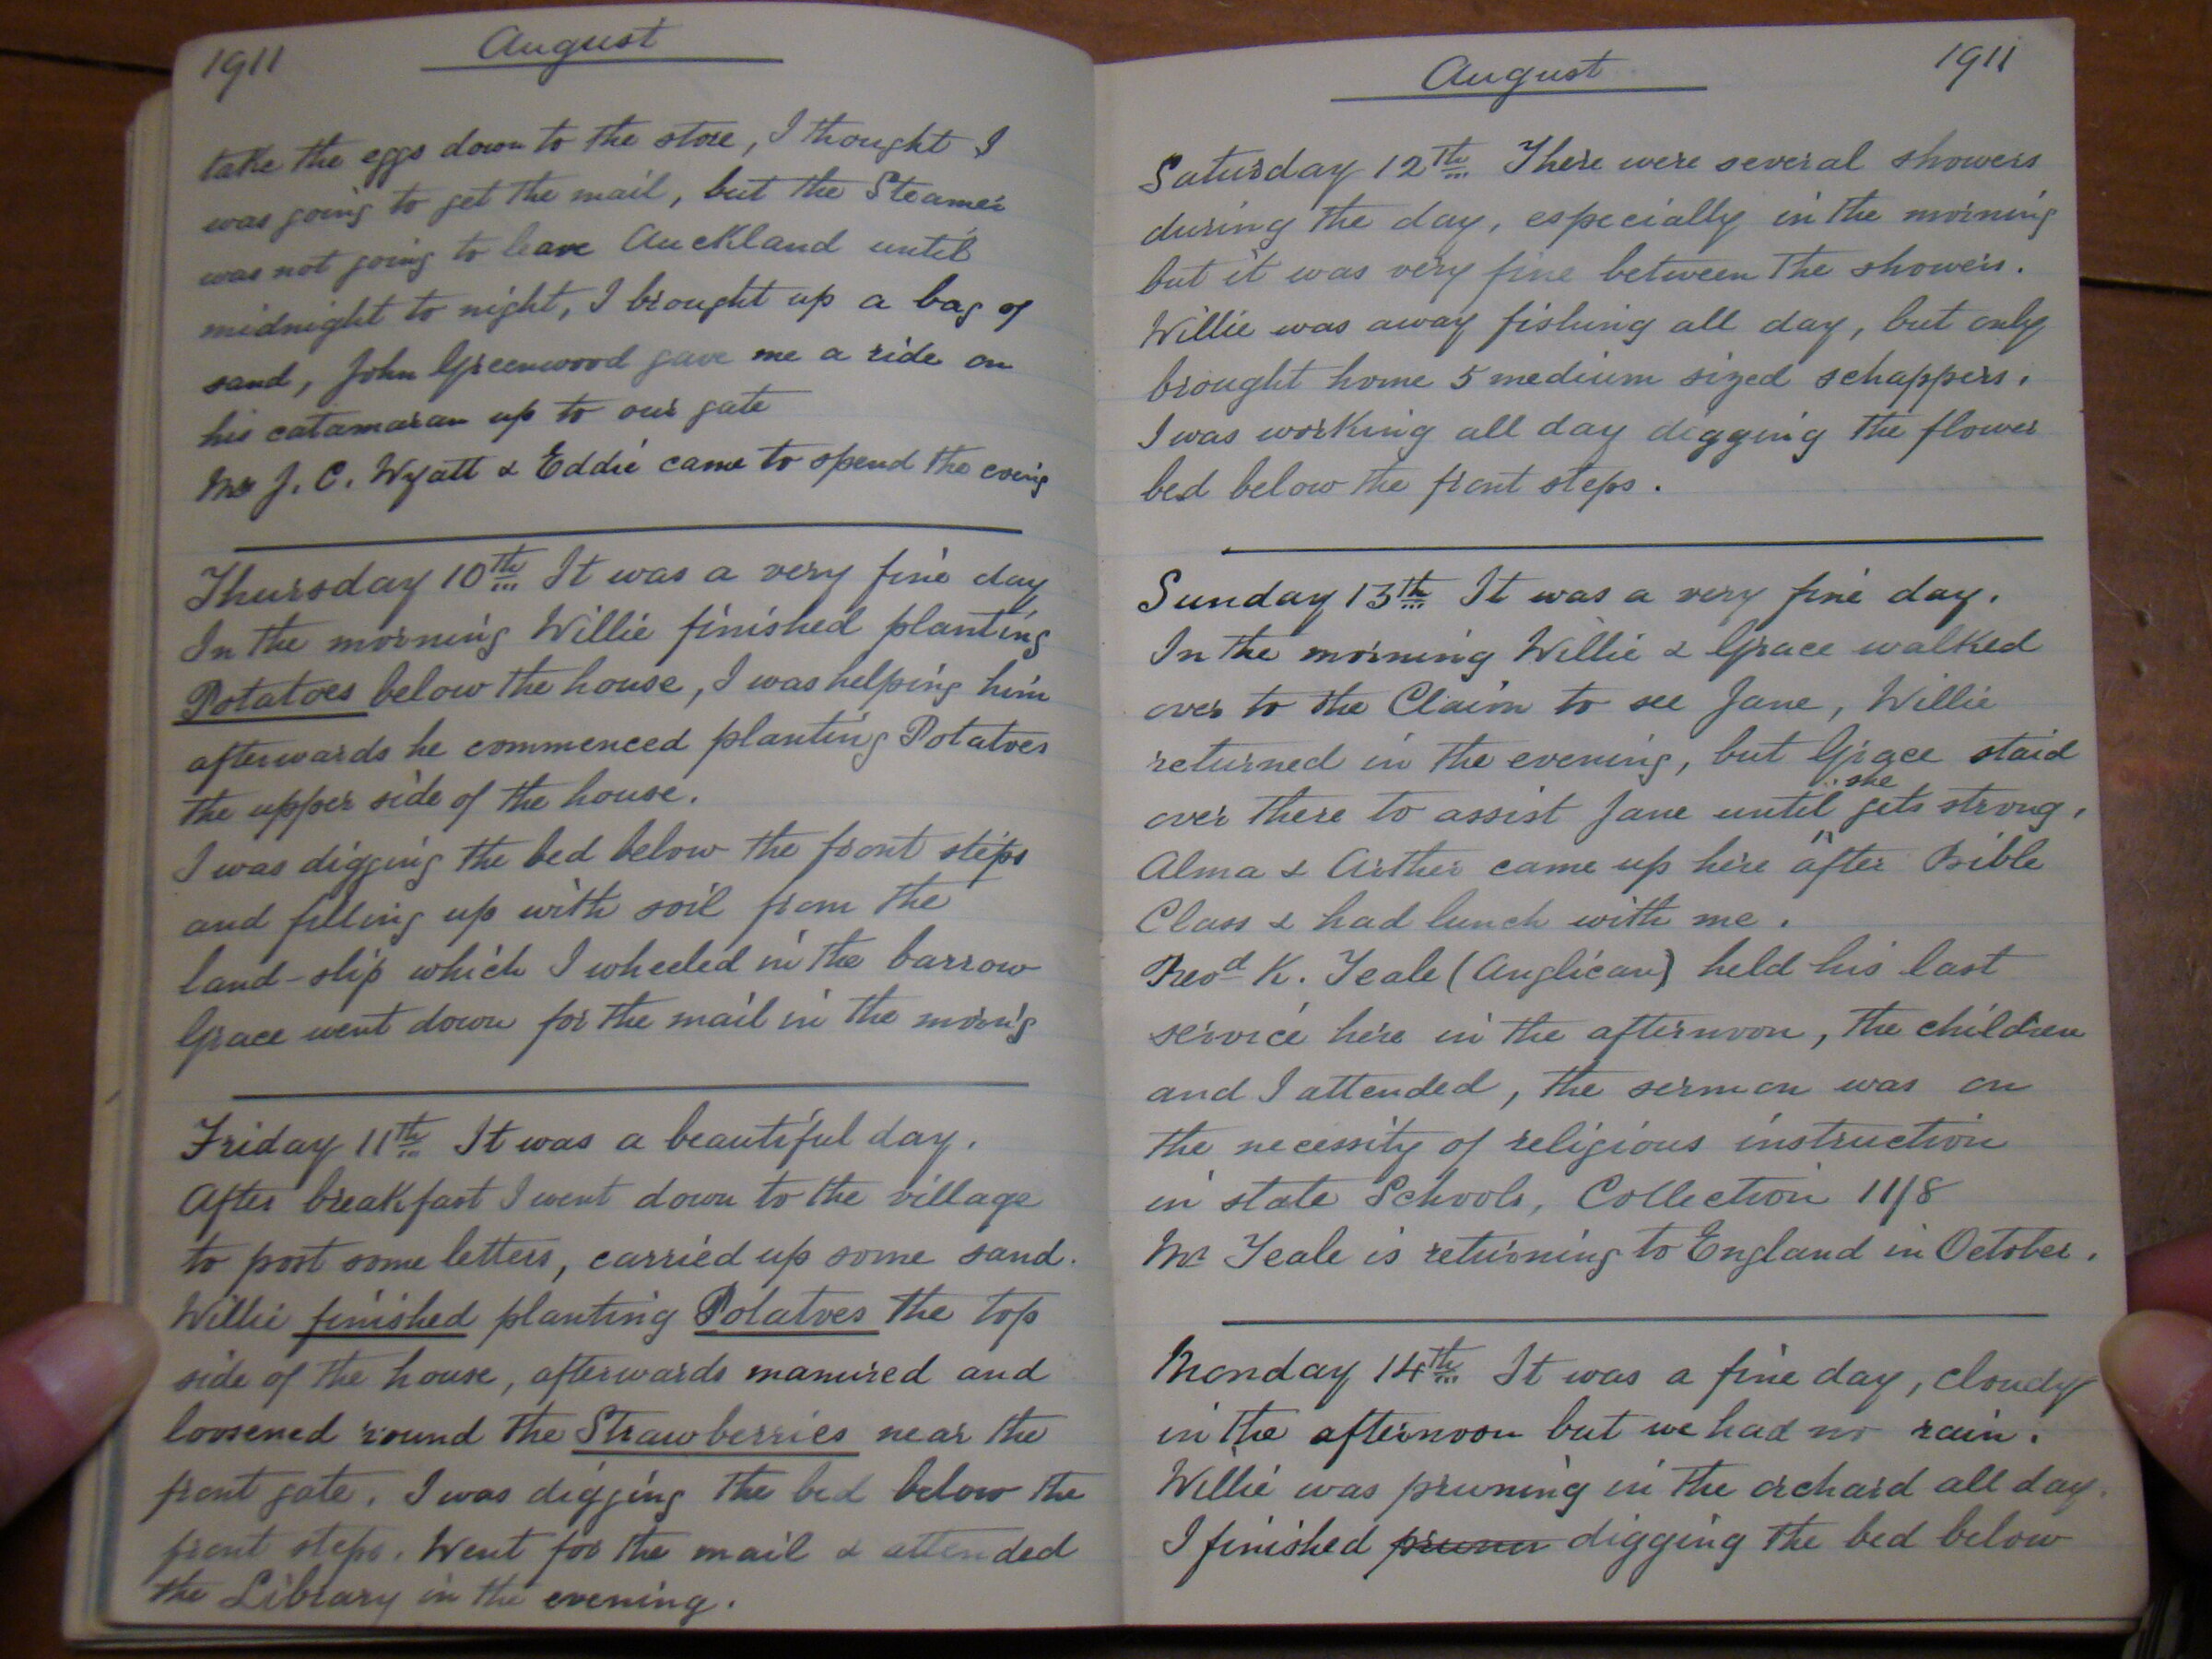 1911 August
take the eggs down to the store, I thought I
was going to get the mail, but the Steamer
was not going to leave Auckland until
midnight to night, I brought up a bag of
sand, John Greenwood gave me a ride on
his catamaran up to our gate
Mr J. C. Wyatt & Eddie came to spend the eveing
Thursday 10th It was a very fine day
In the morning Willie finished planting
Potatoes below the house, I was helping him
afterwards he commenced planting Potatoes
the upper side of the house.
I was digging the bed below the front steps
and filling up with soil from the
land-slip which I wheeled in the barrow
Grace went down for the mail in the morn'g
Friday 11th It was a beautiful day.
After breakfast I went down to the village
to post some letters, carried up some sand.
Willie finished planting Potatoes the top
side of the house, afterwards manured and
loosened round the Strawberries near the
front gate. I was digging the bed below the
front steps. Went for the mail & attended
the Library in the evening.
August 1911
Saturday 12th There were several showers
during the day, especially in the morning
but it was very fine between the showers.
Willie was away fishing all day, but only
brought home 5 medium sized schappers.
I was working all day digging the flower
bed below the front steps.
Sunday 13th It was a very fine day.
In the morning Willie & Grace walked
over to the Claim to see Jane, Willie
returned in the evening, but Grace staid
over there to assist Jane until she gets strong.
Alma & Arther came up here after Bible
Class & had lunch with me.
Revd K. Teale (Anglican) held his last
service here in the afternoon, the children
and I attended, the sermon was on
the necessity of religious instruction
in state Schools, Collection 11/8
Mr Teale is returning to England in October.
Monday 14th It was a fine day, cloudy
in the afternoon but we had no rain.
Willie was pruning in the orchard all day.
I finished prunin digging the bed below